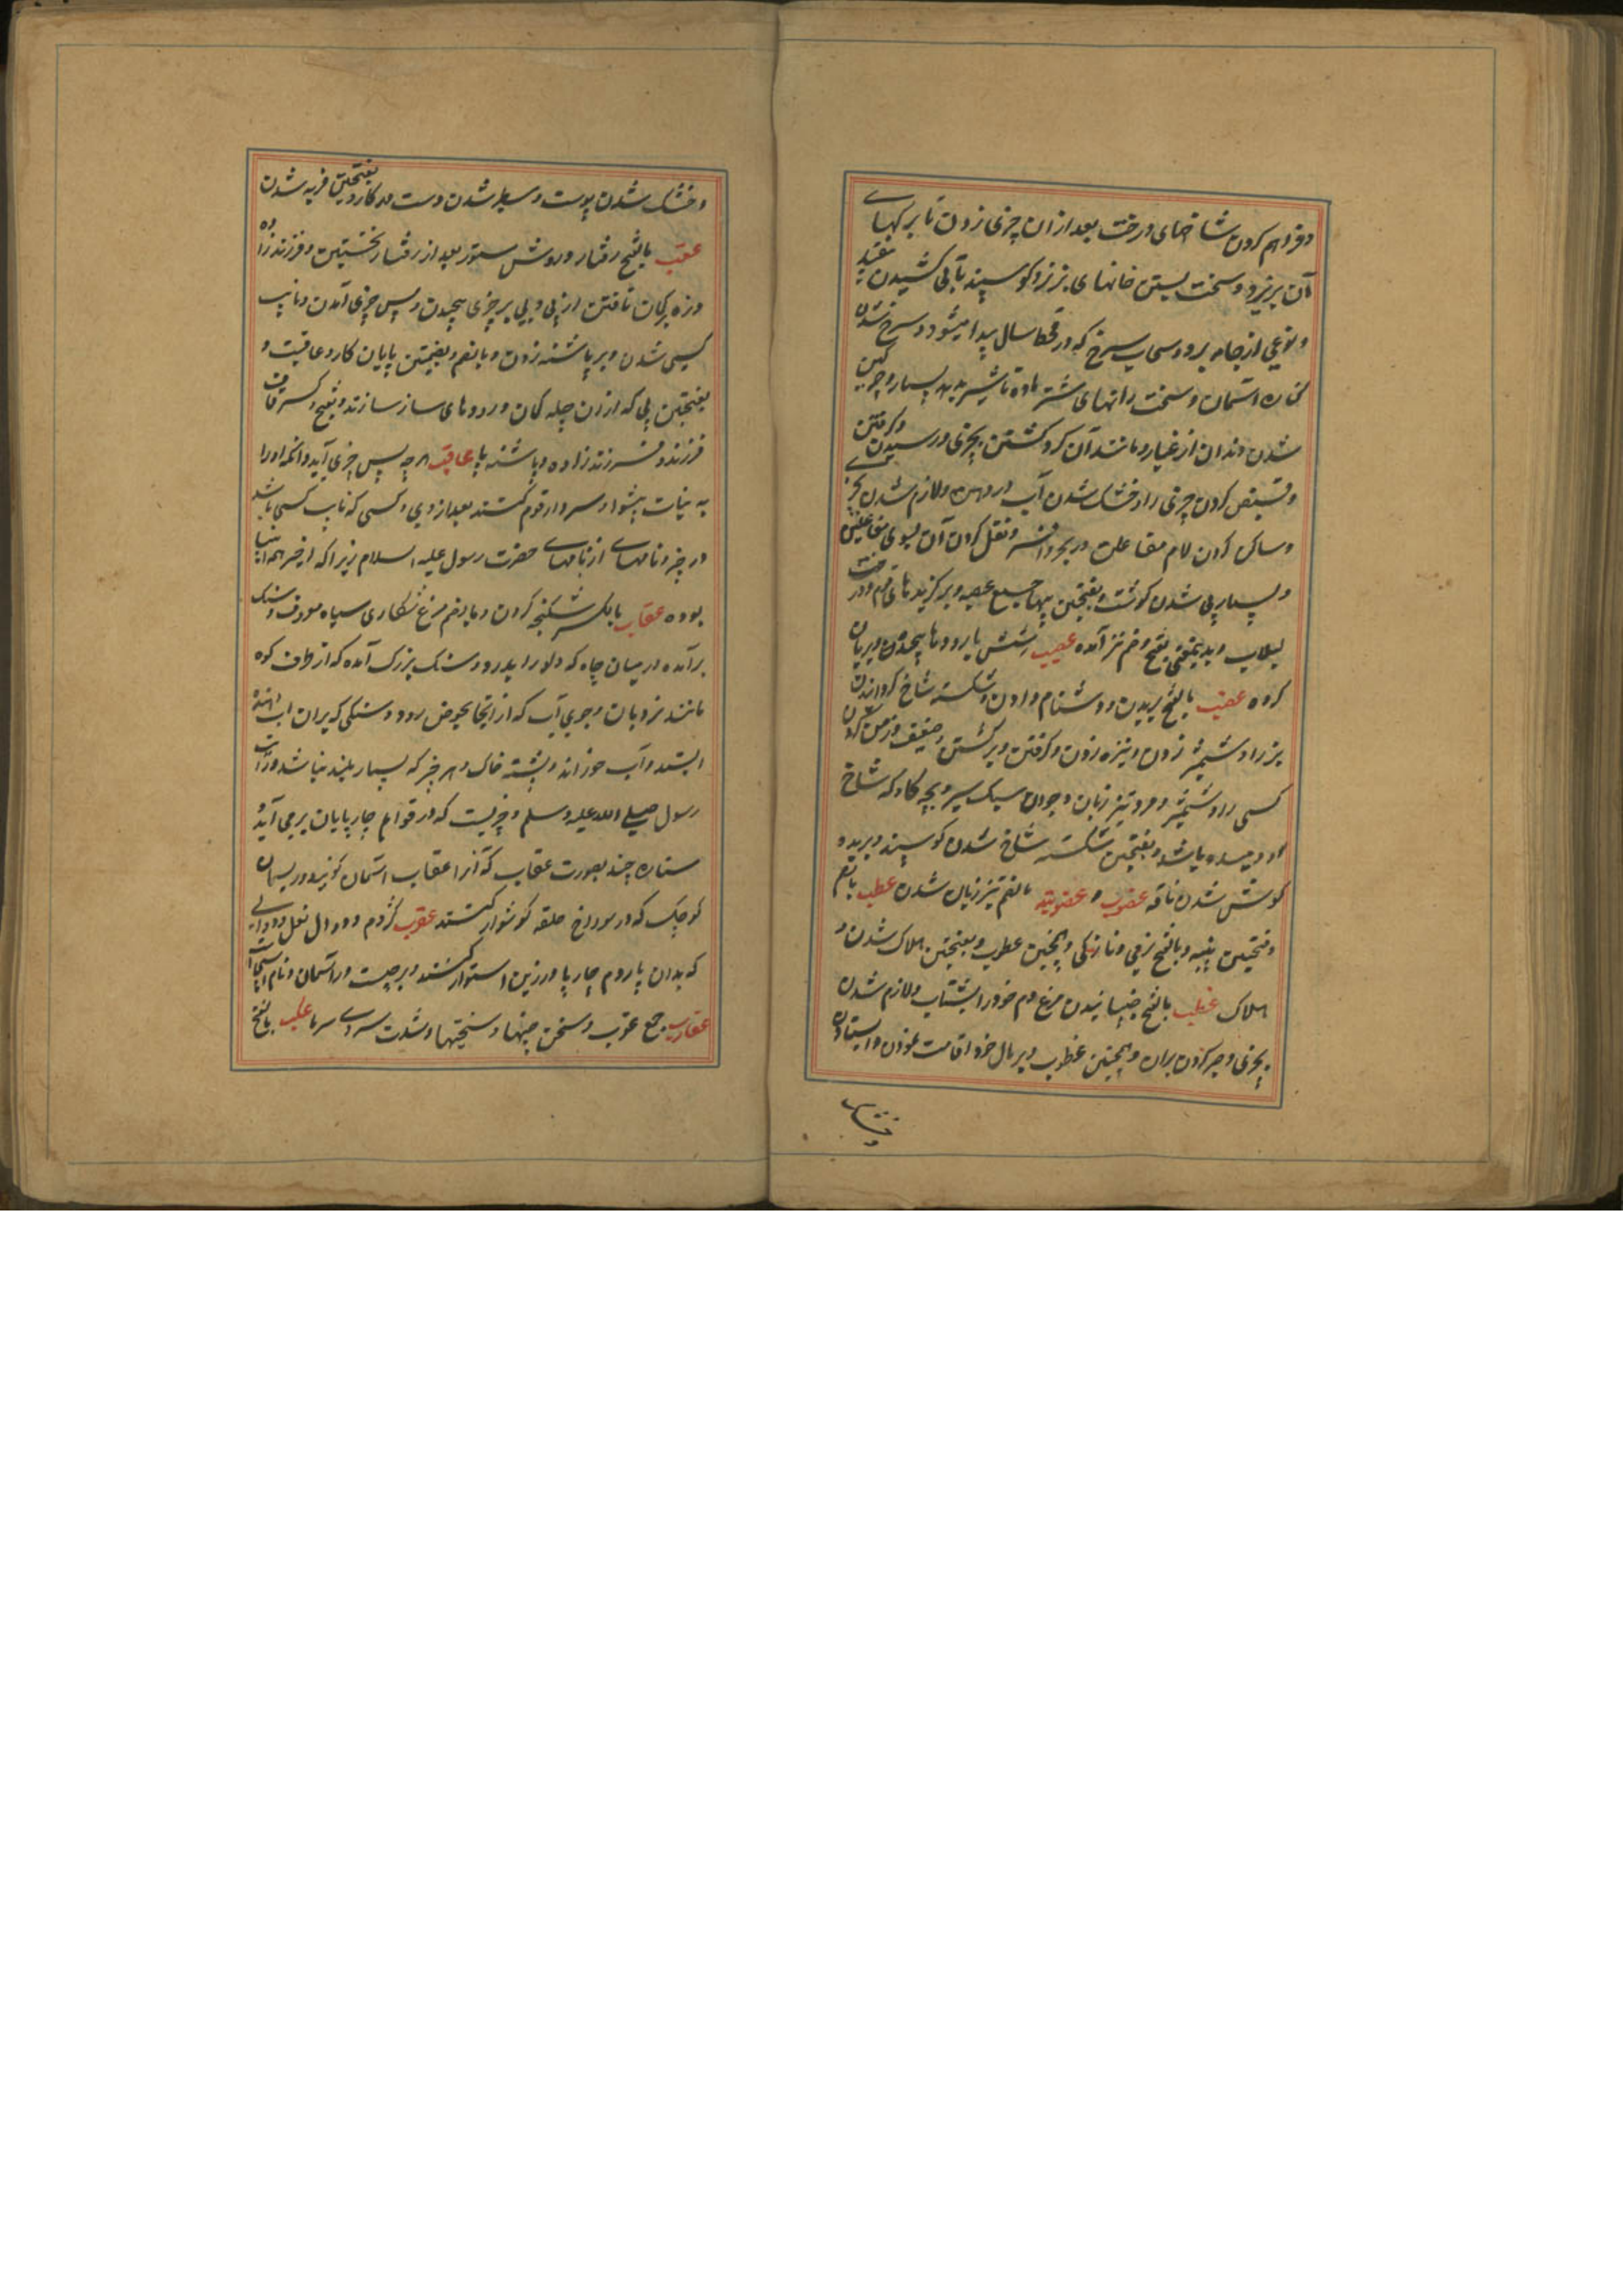 و فراهم کردن شاخهای درخت بعد از ان چیزی زدن تا برکهای
آن بریزد و سخت بستن خانهای بز نر و کوسپند تا بی کشیدن بیفتد
و نوعی از جامه برد و سحاب سرخ که در قحط سال پیدا میشود و سرخ شدن
کناره آسمان و سخت رانهای شتر ماده تا شیر بدهد بسیار و چرکین
شدن دندان از غبار و مانند آن کرد کشتن بچیزی و رسیدن و کرفتن
و قبض کردن چیزی را و خشک شدن آب در دهن و لازم شدن بچیزی
و ساکن کردن لام مفاعلتن در بحر وافر و نقل کردن آن بسوی مفاعیلن
و بسیار پی شدن کوشت و بفتحتین پیها جمع عصبه و برکزیدهای قوم و درخت
لبلاب و بدینمعنی بفتح و ضم نیز آمده عصیب شش با رودها پیچیده و بریان
کرده عضب بالفتح بریدن و دشنام دادن و شکسته شاخ کردانیدن
بز را و شمشیر زدن و نیزه زدن و کرفتن و برکشتن و ضعیف و زمن کردن
کسی را و شمشیر و مرد تیز زبان و جوان سبک سیر و بچه کاو که شاخ
او دمیده باشد و بفتحتین شکسته شاخ شدن کوسپند و بریده
کوش شدن ناقه عضوب و عضوبة بالضم تیز زبان شدن عطب بالضم
و ضمتین پنبه و بالفتح نرمی و نازکی و همچنین عطوب و بفتحتین هلاک شدن و
هلاک عظب بالفتح جنبانیدن مرغ دم خود را بشتاب و لازم شدن
بچیزی و صبر کردن بران و همچنین عظوب و بر مال خود اقامت نمودن و ایستادن
و خشک
و خشک شدن پوست و سطبر شدن دست در کار و بفتحتین فربه شدن
عقب بالفتح رفتار و روش ستور بعد از رفتار نخستین و فرزند زاده
و زه بر کمان تافتن از پی و پی بر چیزی پیچیدن و پس چیزی آمدن و نایب
کسی شدن و بر پاشنه زدن و بالضم و بضمتین پایان کار و عاقبت و
بفتحتین پی که از ان چله کمان و رودهای ساز سازند و بفتح و کسر قاف
فرزند و فرزند زاده و پاشنه پا عاقب هر چه پس چیزی آید و آنکه او را
به نیابت پیشوا و سردار قوم کنند بعد از وی و کسی که نایب کسی باشد
در چیز و نامهای از نامهای حضرت رسول علیه السلام زیرا که اخر همه انبیا
بوده عقاب بالکسر شکنجه کردن و بالضم مرغ شکاری سیاه معروف و سنک
برآمده در میان چاه که دلو را بدرد و سنک بزرک آمده که از طرف کوه
مانند نردبان و جوی آب که از انجا بحوض رود و سنکی که بران اب دهنده
ایستد و آب خوراند و پشته خاک و هر چیز که بسیار بلند نباشد و رایت
رسول صلی الله علیه وسلم و چیزیست که در قوایم چارپایان برمی آید و
ستاره چند بصورت عقاب که آنرا عقاب آسمان کویند و ریسمان
کوچک که در سوراخ حلقه کوشوار کنند عقرب کژدم و دوال نعل و دوالی
که بدان پاردم چارپا و زین استوار کنند و برجیست در آسمان و نام اسپ
عقارب جمع عقرب و سخن چینها و سختیها و شدت سردی سرما عکب بالفتح